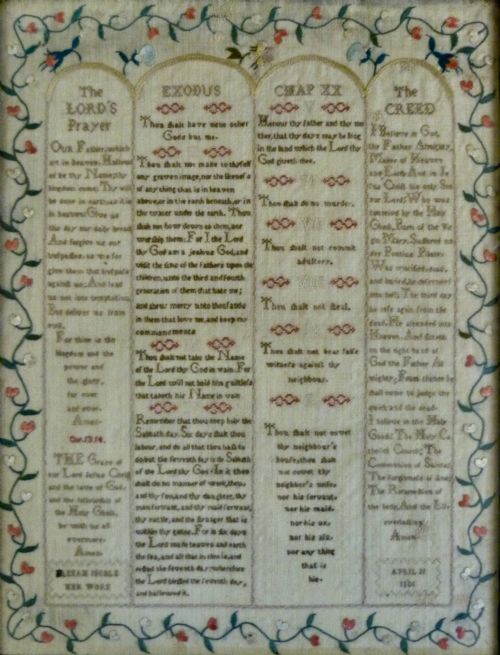 The
LORD'S
Prayer
OUR Father, which
art in heaven, Hallow
ed be thy Name, thy
kingdom come; Thy will
be done in earth, as it is
in heaven; Give us
the day our daily bread
And forgive us our
trespasses, as we for
give them that trespass
against us; And lead
us not into temptation;
But deliver us from
evil.
For thine is the
kingdom and the
power and
the glory,
for ever
and ever.
Amen.
Cor. 13.14.
THE Grace of
our Lord Jesus Christ
and the love of God,
and the fellowship of
the Holy Ghost,
be with us all
evermore.
Amen.
HER WORK
EXODUS
Thou shalt have none other
Gods but me.
Thou shalt not make to thyself
any graven image, nor the likeness
of any thing that is in heaven
above, or in the earth beneath, or in
the water under the earth. Thou
shalt not bow down to them, nor
worship them; For I the Lord
thy God am a jealous God, and
visit the sins of the fathers upon the
children, unto the third and fourth
generation of them that hate me;
and shew mercy unto thousands
in them that love me, and keep my
commandments
Thou shalt not take the Name
of the Lord thy God in vain. For
the Lord will not hold him guiltless
that taketh his Name in vain
Remember that thou keep holy the
Sabbath day. Six days shalt thou
labour, and do all that thou hast to
do; but the seventh day is the Sabbath
of the Lord thy God. In it thou
shalt do no manner of work, thou,
and thy son, and thy daughter, thy
man servant, and thy maid servant,
thy cattle, and the stranger that is
within thy gates. For in six days
the Lord made heaven and earth
the sea, and all that in them is, and
rested the seventh day: wherefore
the Lord blessed the seventh day,
and hallowed it.
CHAP XX
V
Honour thy father and thy mo
ther, that thy days may be long
in the land which the Lord thy
God giveth thee.
VI
Thou shalt do no murder.
VII
Thou shalt not commit
adultery.
VIII
Thou shalt not steal.
Thou shalt not bear false
witness against thy
neighbour.
X
Thou shalt not covet
thy neighbour's
house, thou shalt
not covet thy
neighbor's wife,
nor his servant,
nor his maid,
nor his ox,
nor his ass,
nor any thing
that is
his.
The
CREED
I Believe in God,
the Father Almighty,
Maker of Heaven
and Earth And in Je
sus Christ his only Son
our Lord; Who was
conceived by the Holy
Ghost, Born of the Vir
gin Mary, Suffered un
der Pontius Pilate,
Was crucified, dead,
and buried, he descended
into hell; The third day
he rose again from the
dead. He ascended into
Heaven, And sitteth
on the right hand of
God the Father Al
mighty; From thence he
shall come to judge the
quick and the dead.
I believe in the Holy
Ghost; The Holy Ca
tholick Church; The
Communion of Saints;
The forgiveness of sins;
The Resurrection of
the body, And the life
everlasting
Amen.
APRIL 21